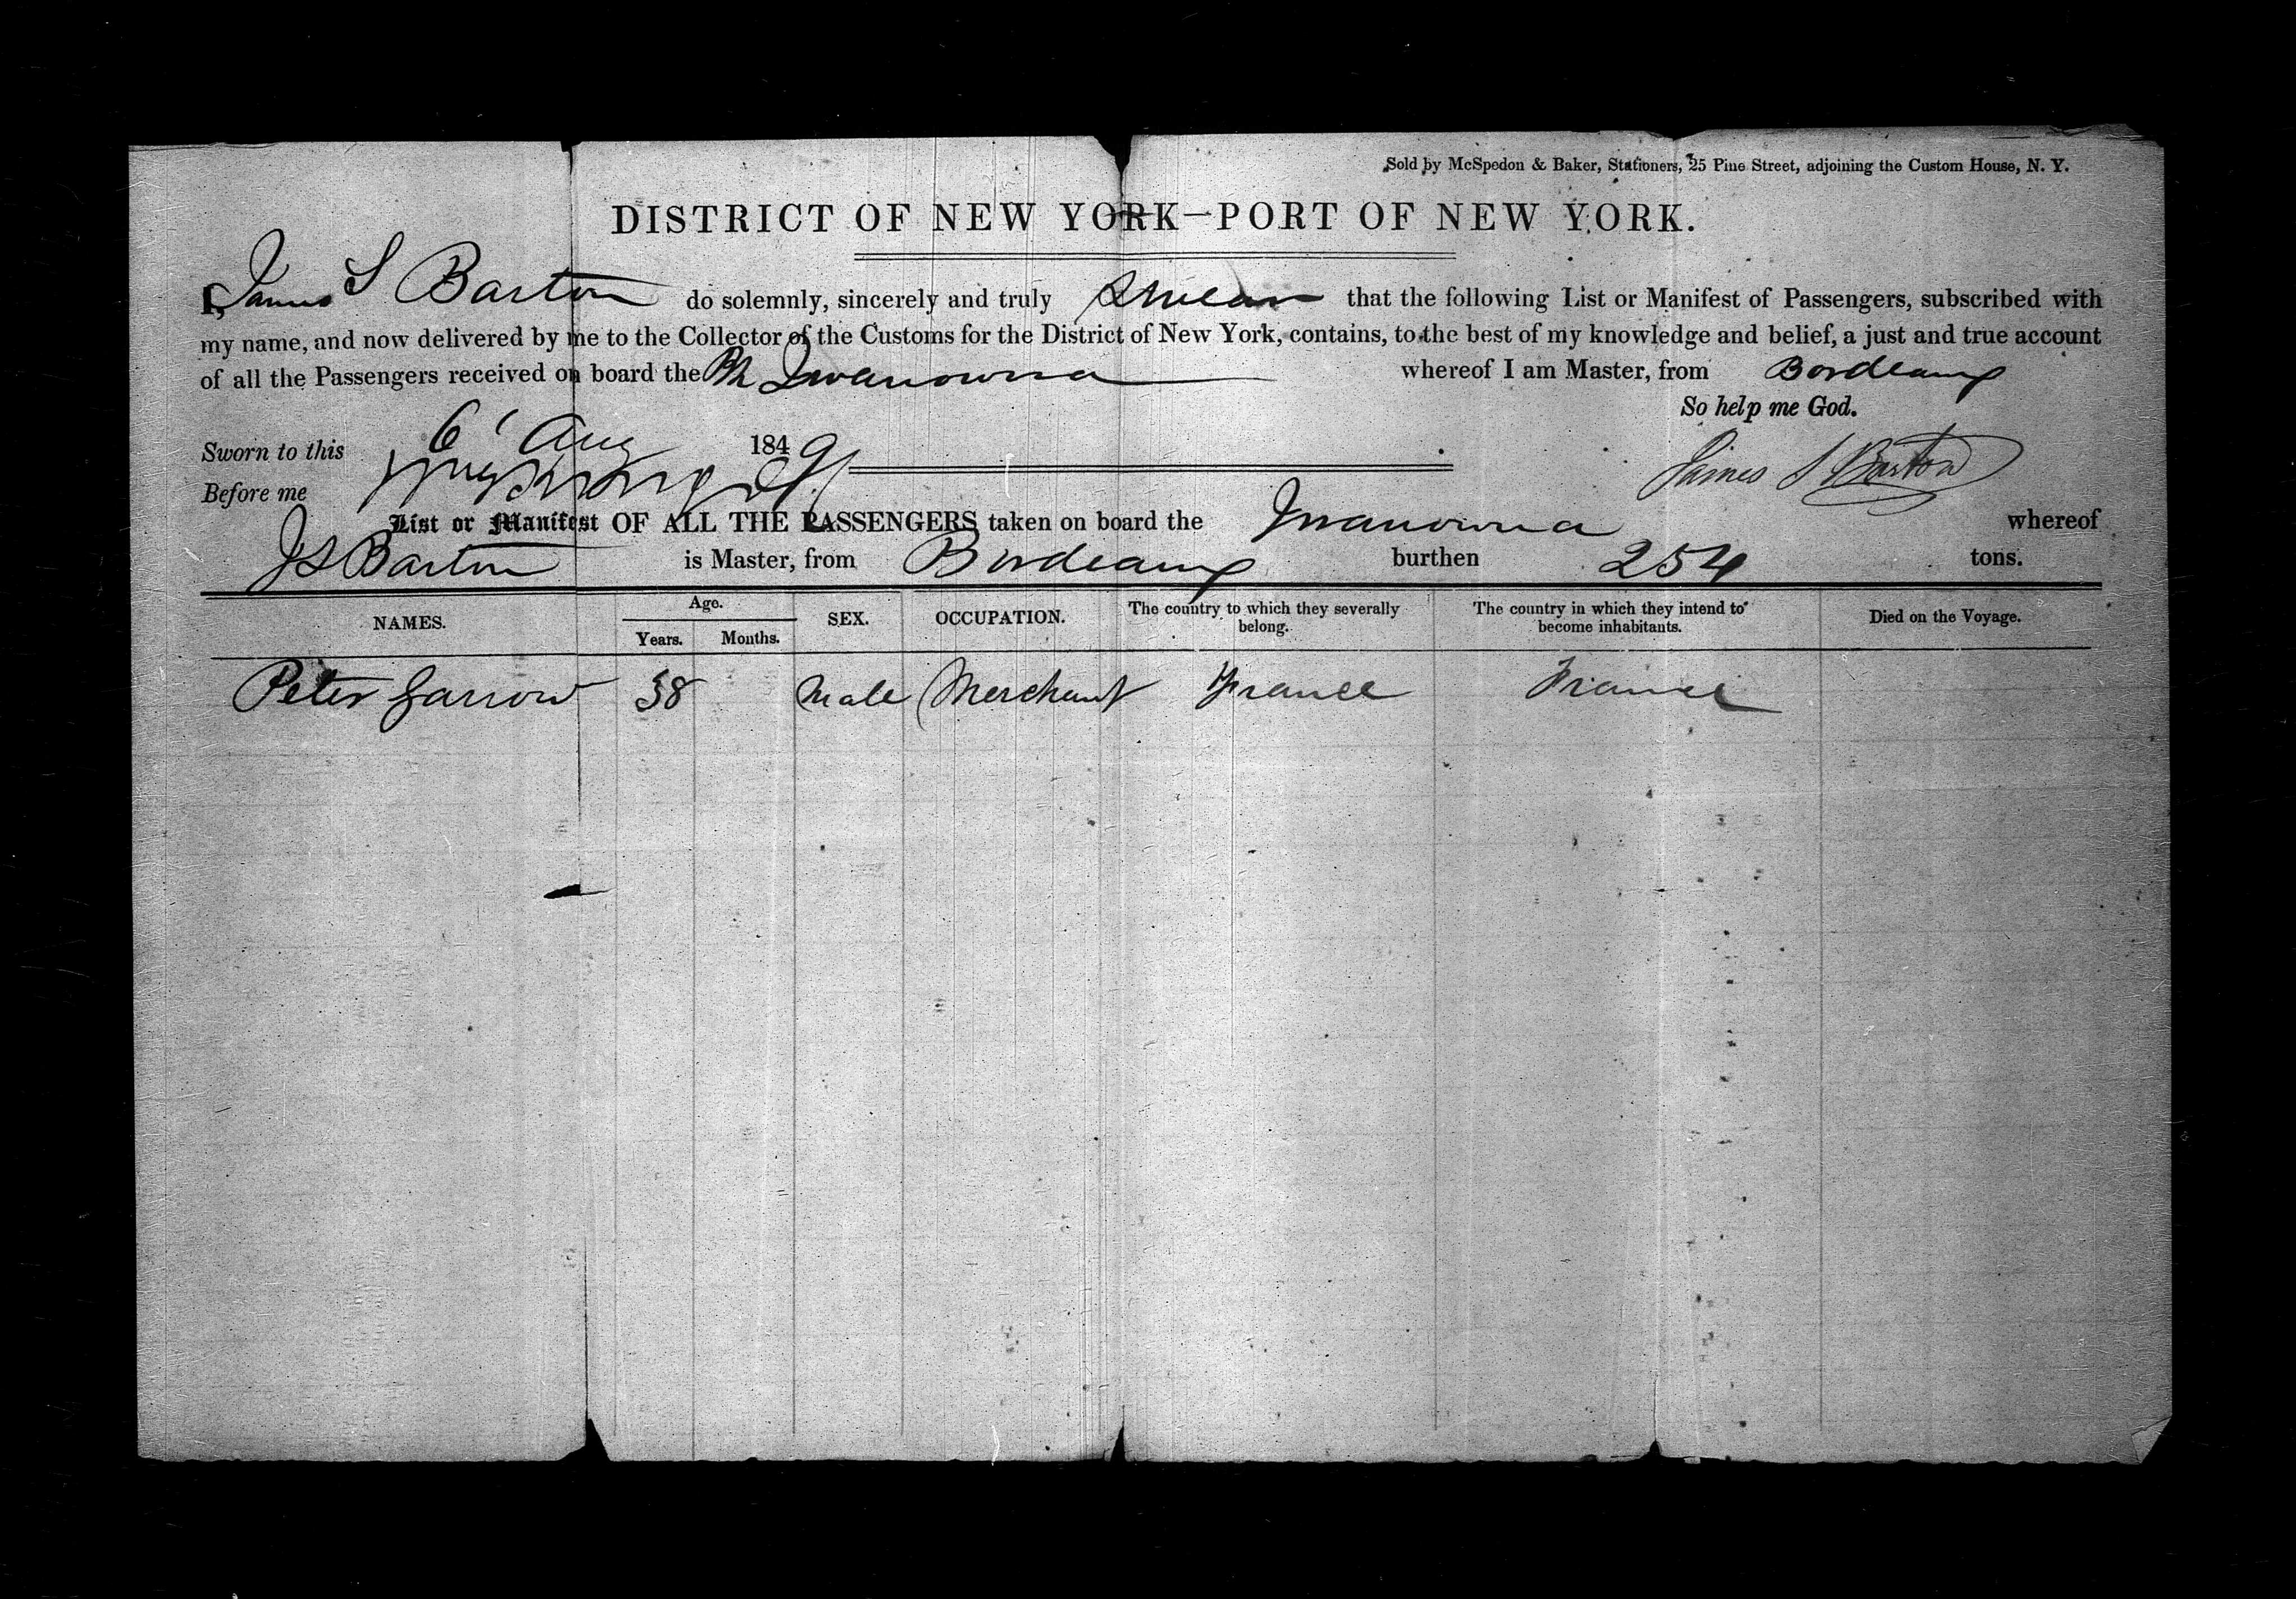 Sold by McSpedon & Baker, Stationers, 25 Pine Street, adjoining the Custom House, N. Y.
DISTRICT OF NEW YORK—PORT OF NEW YORK.
I, James S Barton do solemnly, sincerely and truly swear that the following List or Manifest of Passengers, subscribed with
my name, and now delivered by me to the Collector of the Customs for the District of New York, contains, to the best of my knowledge and belief, a just and true account
of all the Passengers received on board the Iwanowna whereof I am Master, from Bordeaux
So help me God.
Sworn to this 6 Aug 1849
James S Barton
Before me
List or Manifest OF ALL THE PASSENGERS taken on board the Iwanowna whereof
J S Barton is Master, from Bordeaux burthen 254 tons.
NAMES. Age. Years. Months. SEX. OCCUPATION. The country to which they severally belong. The country in which they intend to become inhabitants. Died on the Voyage.
Peter Garrow 38 Male Merchant France France